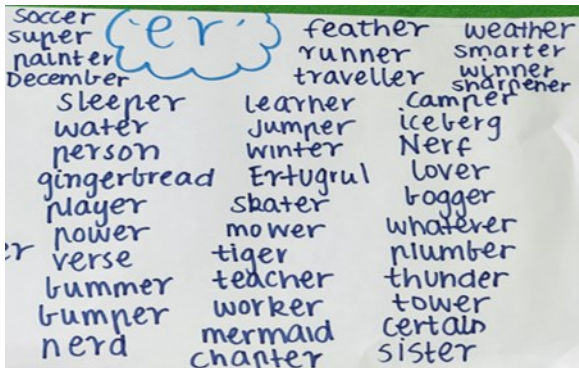 er
soccer
super
painter
December
sleeper
water
person
gingerbread
player
power
verse
er
bummer
bumper
nerd
learner
Jumper
winter
Ertugrul
skater
mower
tiger
teacher
worker
mermaid
chapter
feather
runner
traveller
weather
smarter
winner
sharpener
camper
iceberg
Nerf
lover
bogger
whatever
plumber
thunder
tower
certain
sister